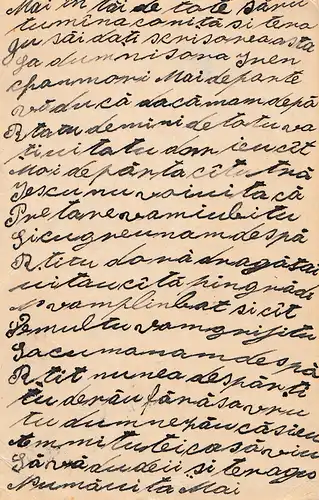 Mai în tâi de tote săru
tumîna conită si tera
gu săi dați scrisorea asta
La dumnisona Iren
Mai departe
vă ducă dacă mam depă
Rtatu demini de totu va
ti uitatu dar ieu cît
Moi depărta cîtu tră
Iescu nu voi uita că
Pre tare vam iubitu
Si cu greu nam despă
Rtitu doră dragăstăi
uitau cîta pin grădi
No vam plinbat si cît
Pe multu vam grijitu
Sacumanam despă
Rtit nu nea despărti
tu derău fără sa vru
tu dumnezău că sieu
Am mitu tei ca să viu
Să vă du deii si te rago
Numă uita Mai